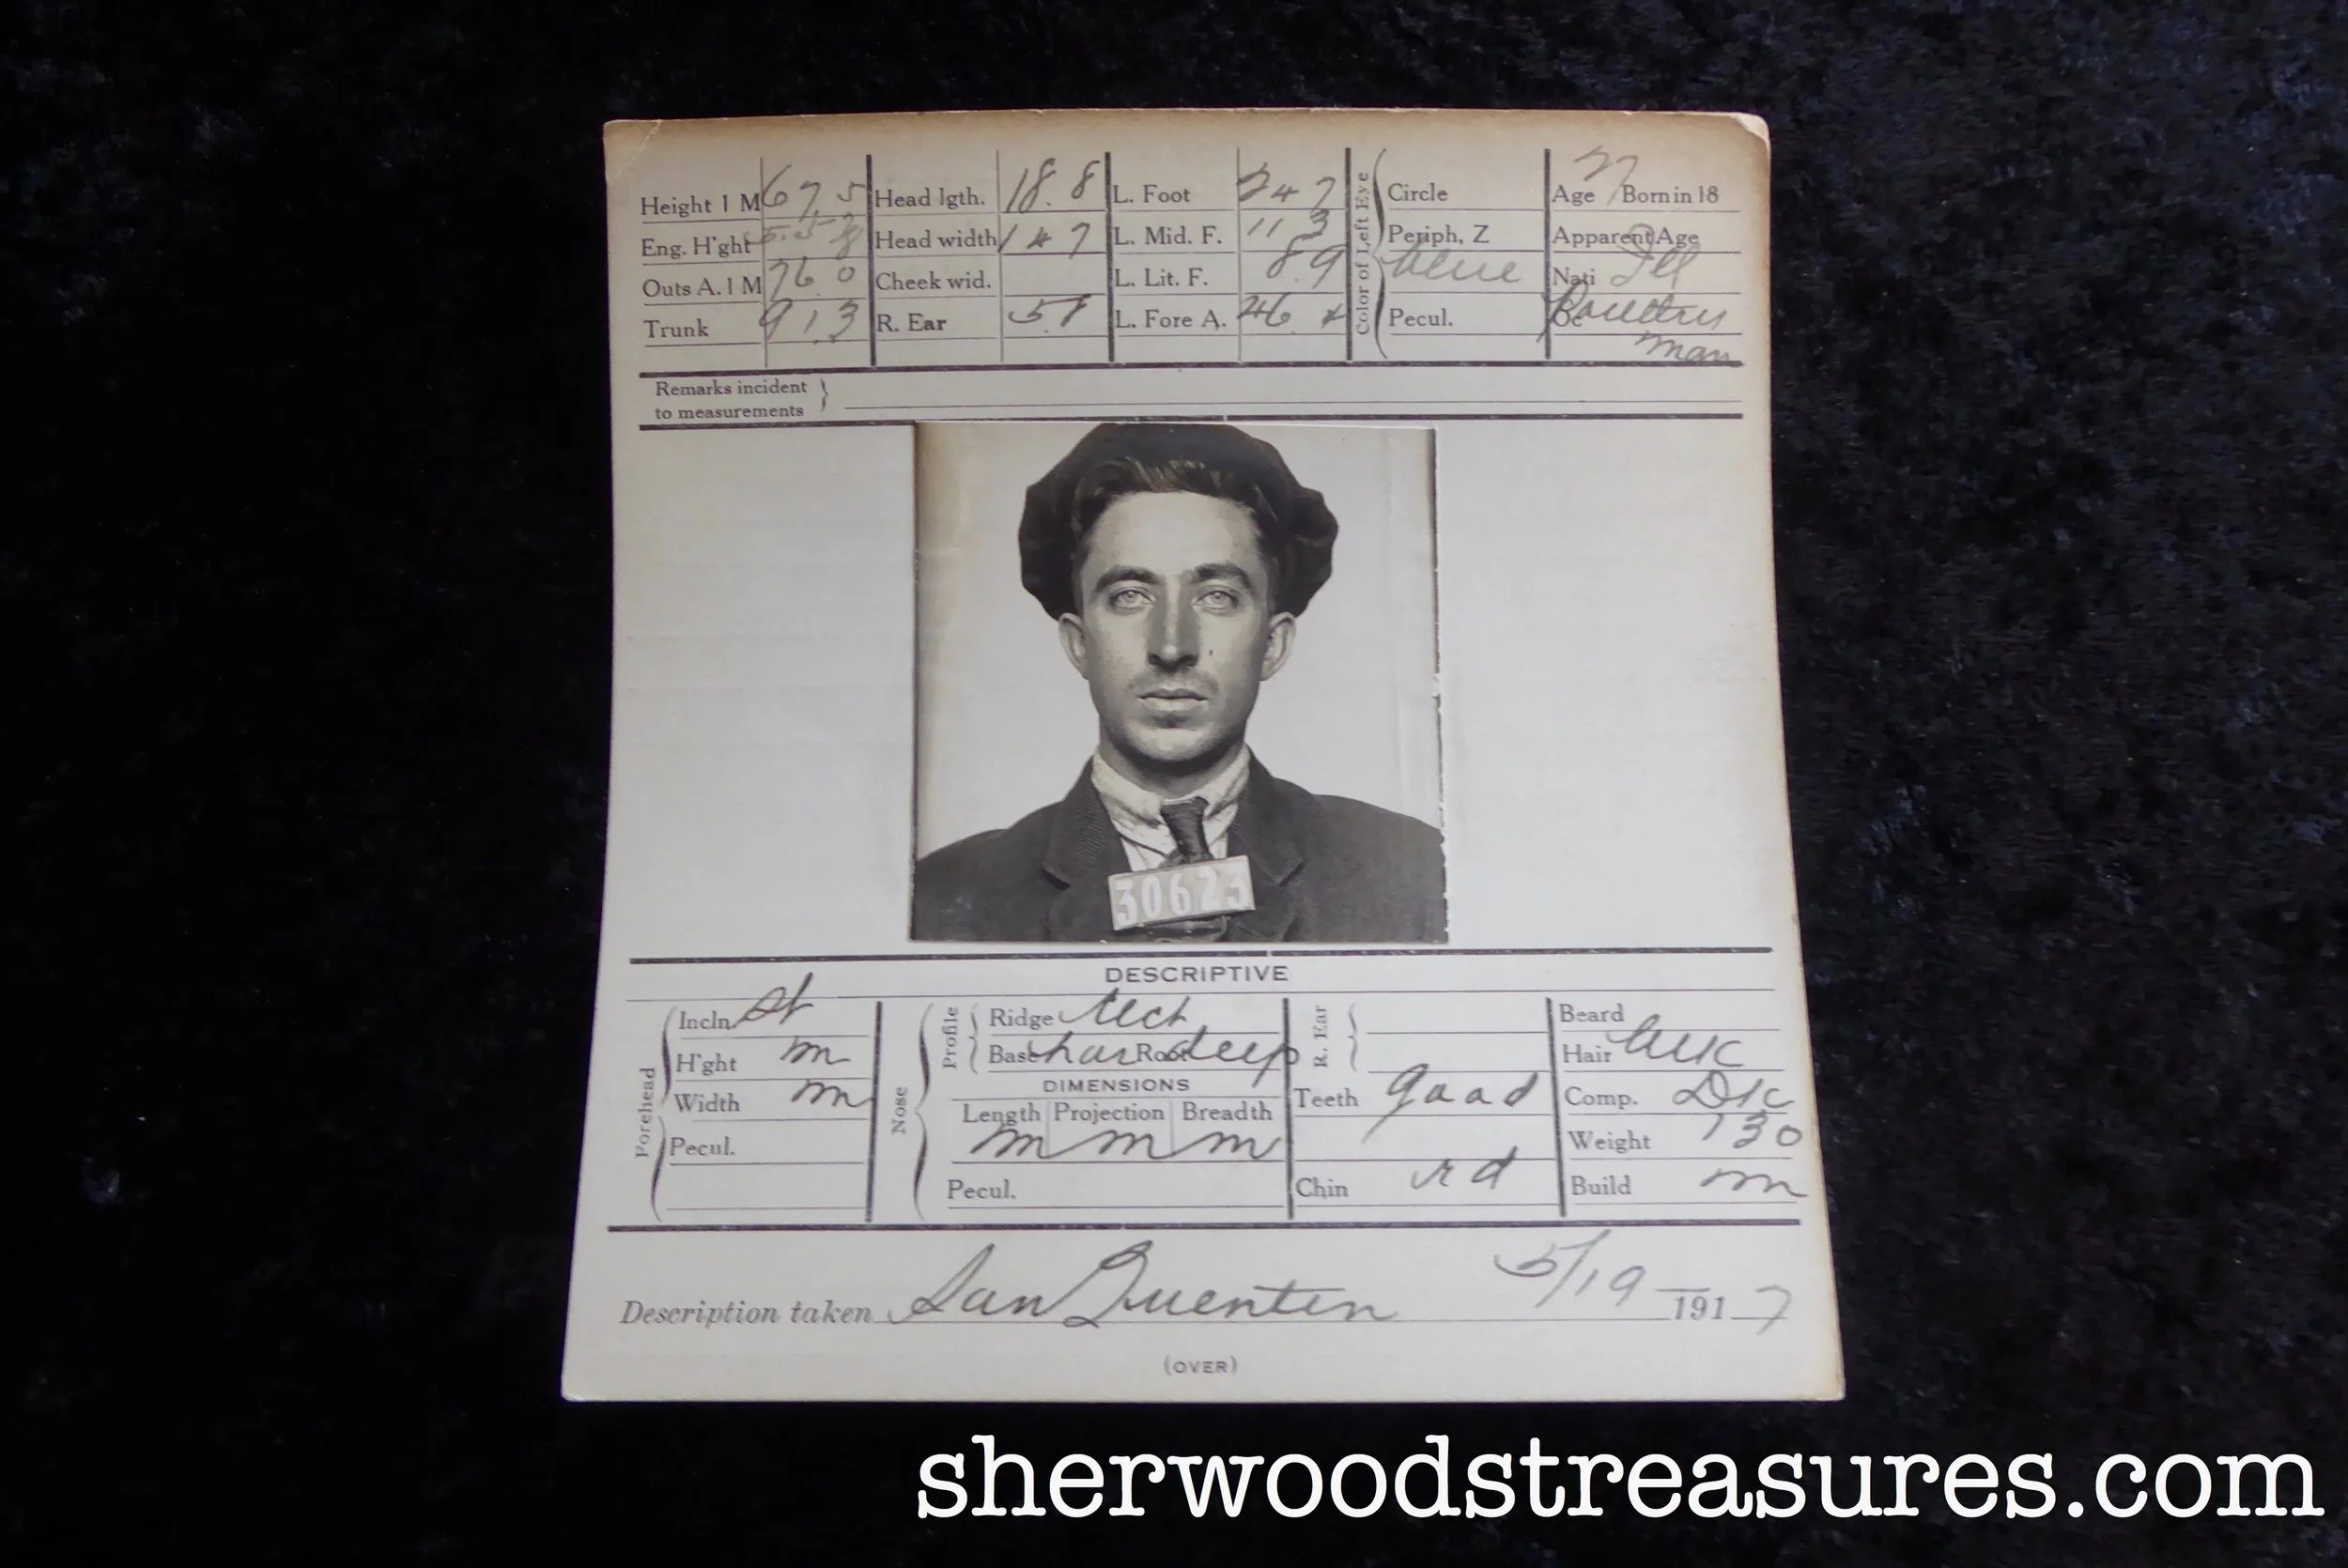 Height 1 M 67.5 Head lgth. 18.8 L. Foot 24 7 Circle Age 27 Born in 18
Eng. H'ght 5.5 Head width 14 7 L. Mid. F. 11 3 Periph. Z Apparent Age
Outs A. 1 M 76 0 Cheek wid. L. Lit. F. 8 9 blue Nati Ill
Trunk 91.3 R. Ear L. Fore A. 46 4 Pecul. Oc Poultry
man
Color of Left Eye
Remarks incident
to measurements
30623
DESCRIPTIVE
Forehead Incln Nose Profile Ridge R. Ear Beard
H'ght m Base hor Root deep Hair
DIMENSIONS
Width m Length Projection Breadth Teeth good Comp. Dk
m m m Weight 130
Pecul. Pecul. Chin rd Build m
Description taken San Quentin 5/19 1917
(OVER)
sherwoodstreasures.com